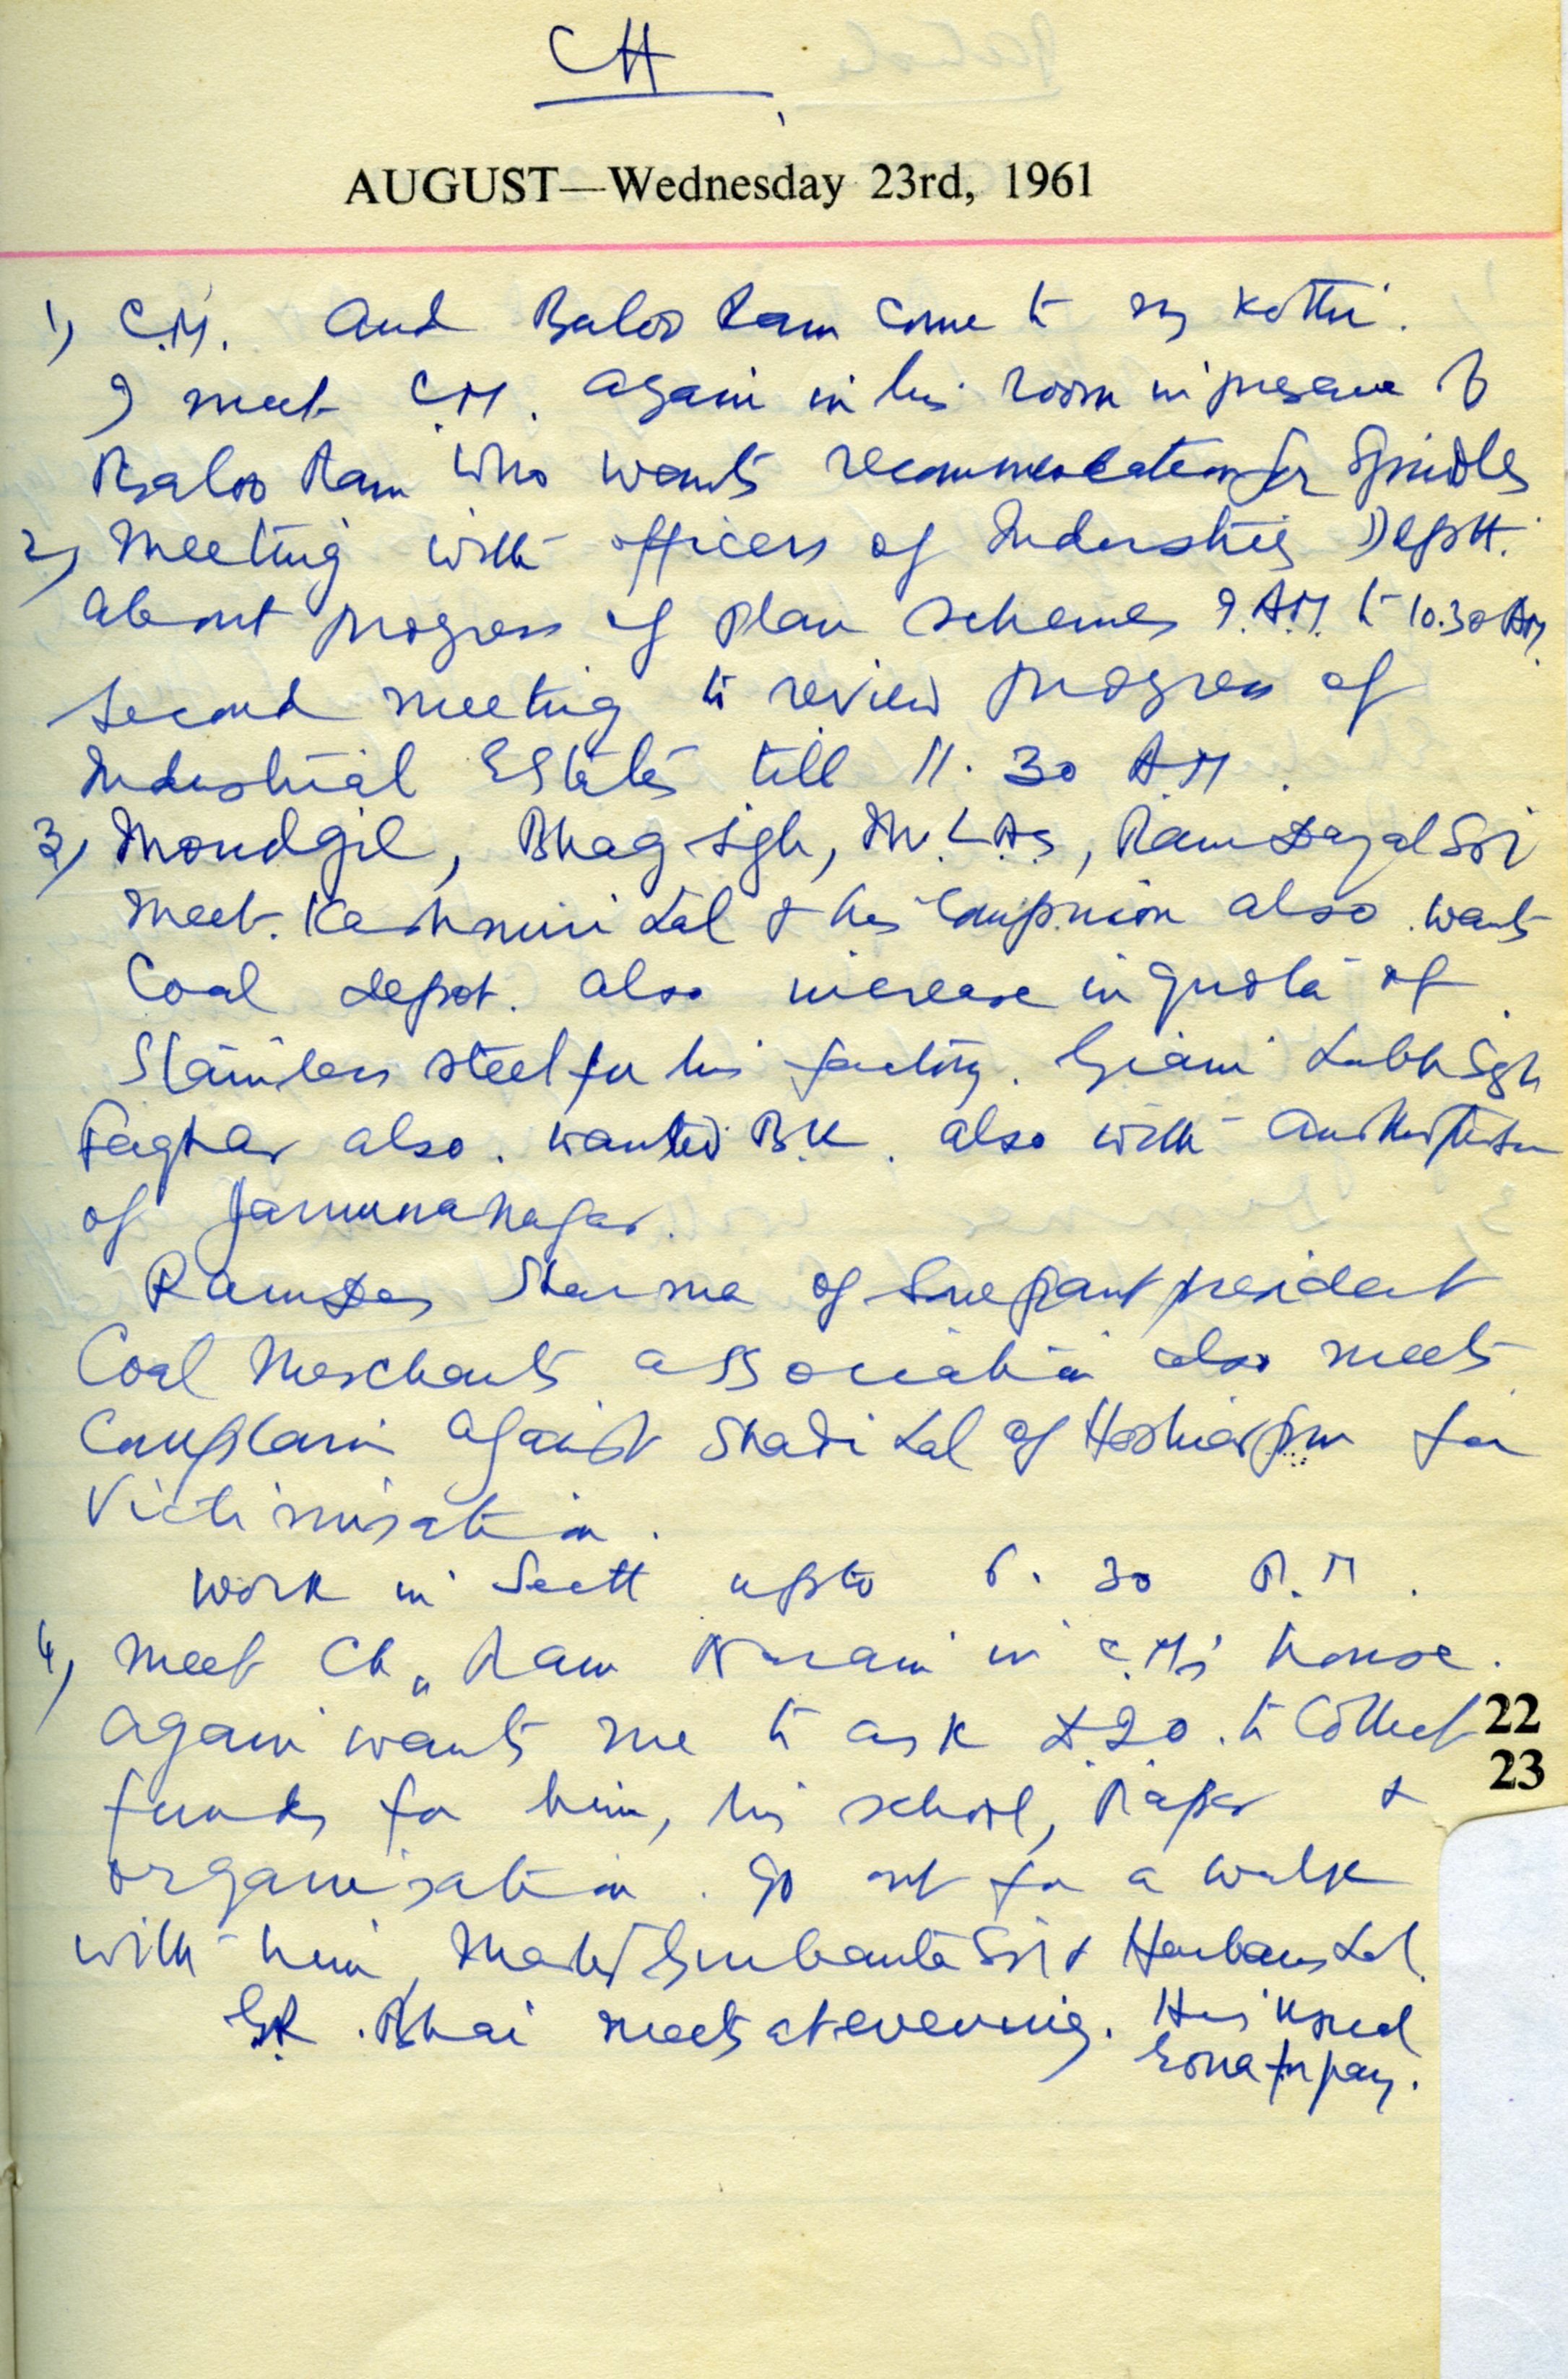 CH
AUGUST—Wednesday 23rd, 1961
1) C.M. and Baloo Ram come to my Kothi.
I meet C.M. again in his room in presence of
Baloo Ram who wants recommendation for Spindles
2) Meeting with officers of Industries Deptt.
about progress of plan schemes 9.A.M. to 10.30 AM.
Second meeting to review progress of
Industrial Estates till 11.30 A.M.
3) Moudgil, Bhag Sgh, M.L.As, Ram Dayal
meet. Kashmiri Lal & his companion also wants
Coal depot. also increase in quota of
Stainless steel for his factory. Giani Labh Sgh
also. wanted B.K. also with
of Jamunanagar.
Ramdas Sharma of president
Coal Merchants association also meets
Complain against Shadi Lal of Hoshiarpur for
Victimisation.
Work in Sectt upto 6.30 P.M.
4) Meet Ch. Ram Narain in C.M's house.
again wants me to ask to collect
funds for him, his school, Paper &
organisation. Go out for a walk
with him, & Harbans Lal.
Bhai meets at evening. His usual
for pay.
22
23